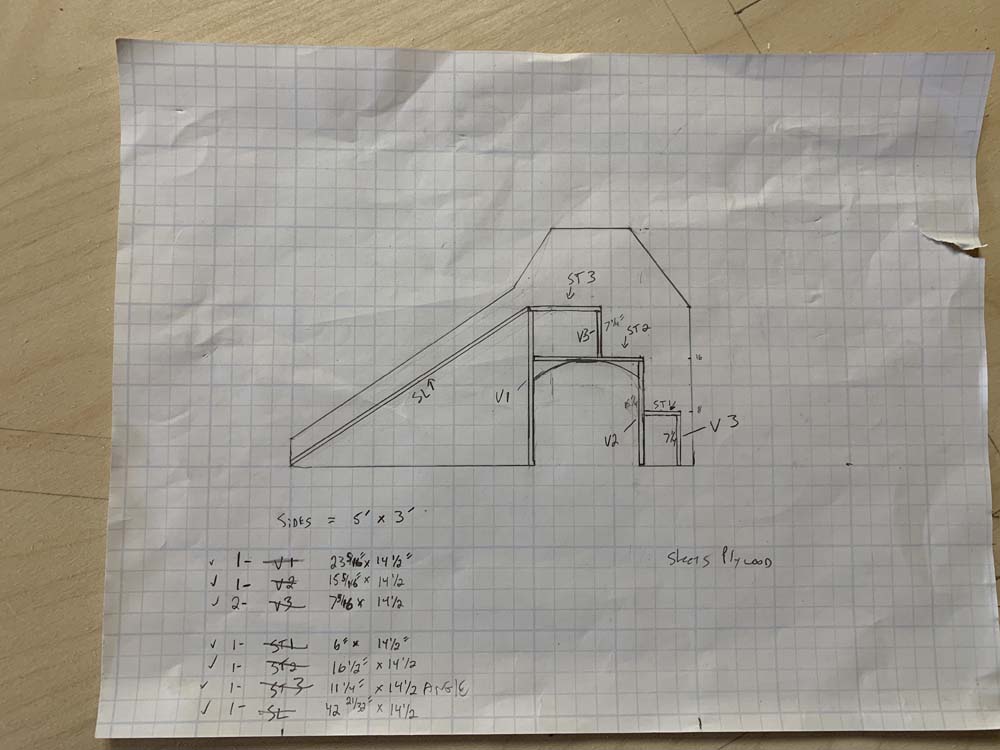 ST 3
7 1/4"
ST2
V3
16
SL
V1
ST1
8
V2
7 1/4
V 3
SIDES = 5' x 3'
✓ 1- V1 23 5/16" x 14 1/2"
✓ 1- V2 15 5/16" x 14 1/2
✓ 2- V3 7 5/16 x 14 1/2
✓ 1- ST1 6" x 14 1/2"
✓ 1- ST2 16 1/2" x 14 1/2
✓ 1- ST3 11 1/4" x 14 1/2 ANGLE
✓ 1- SL 42 21/32" x 14 1/2
Plywood